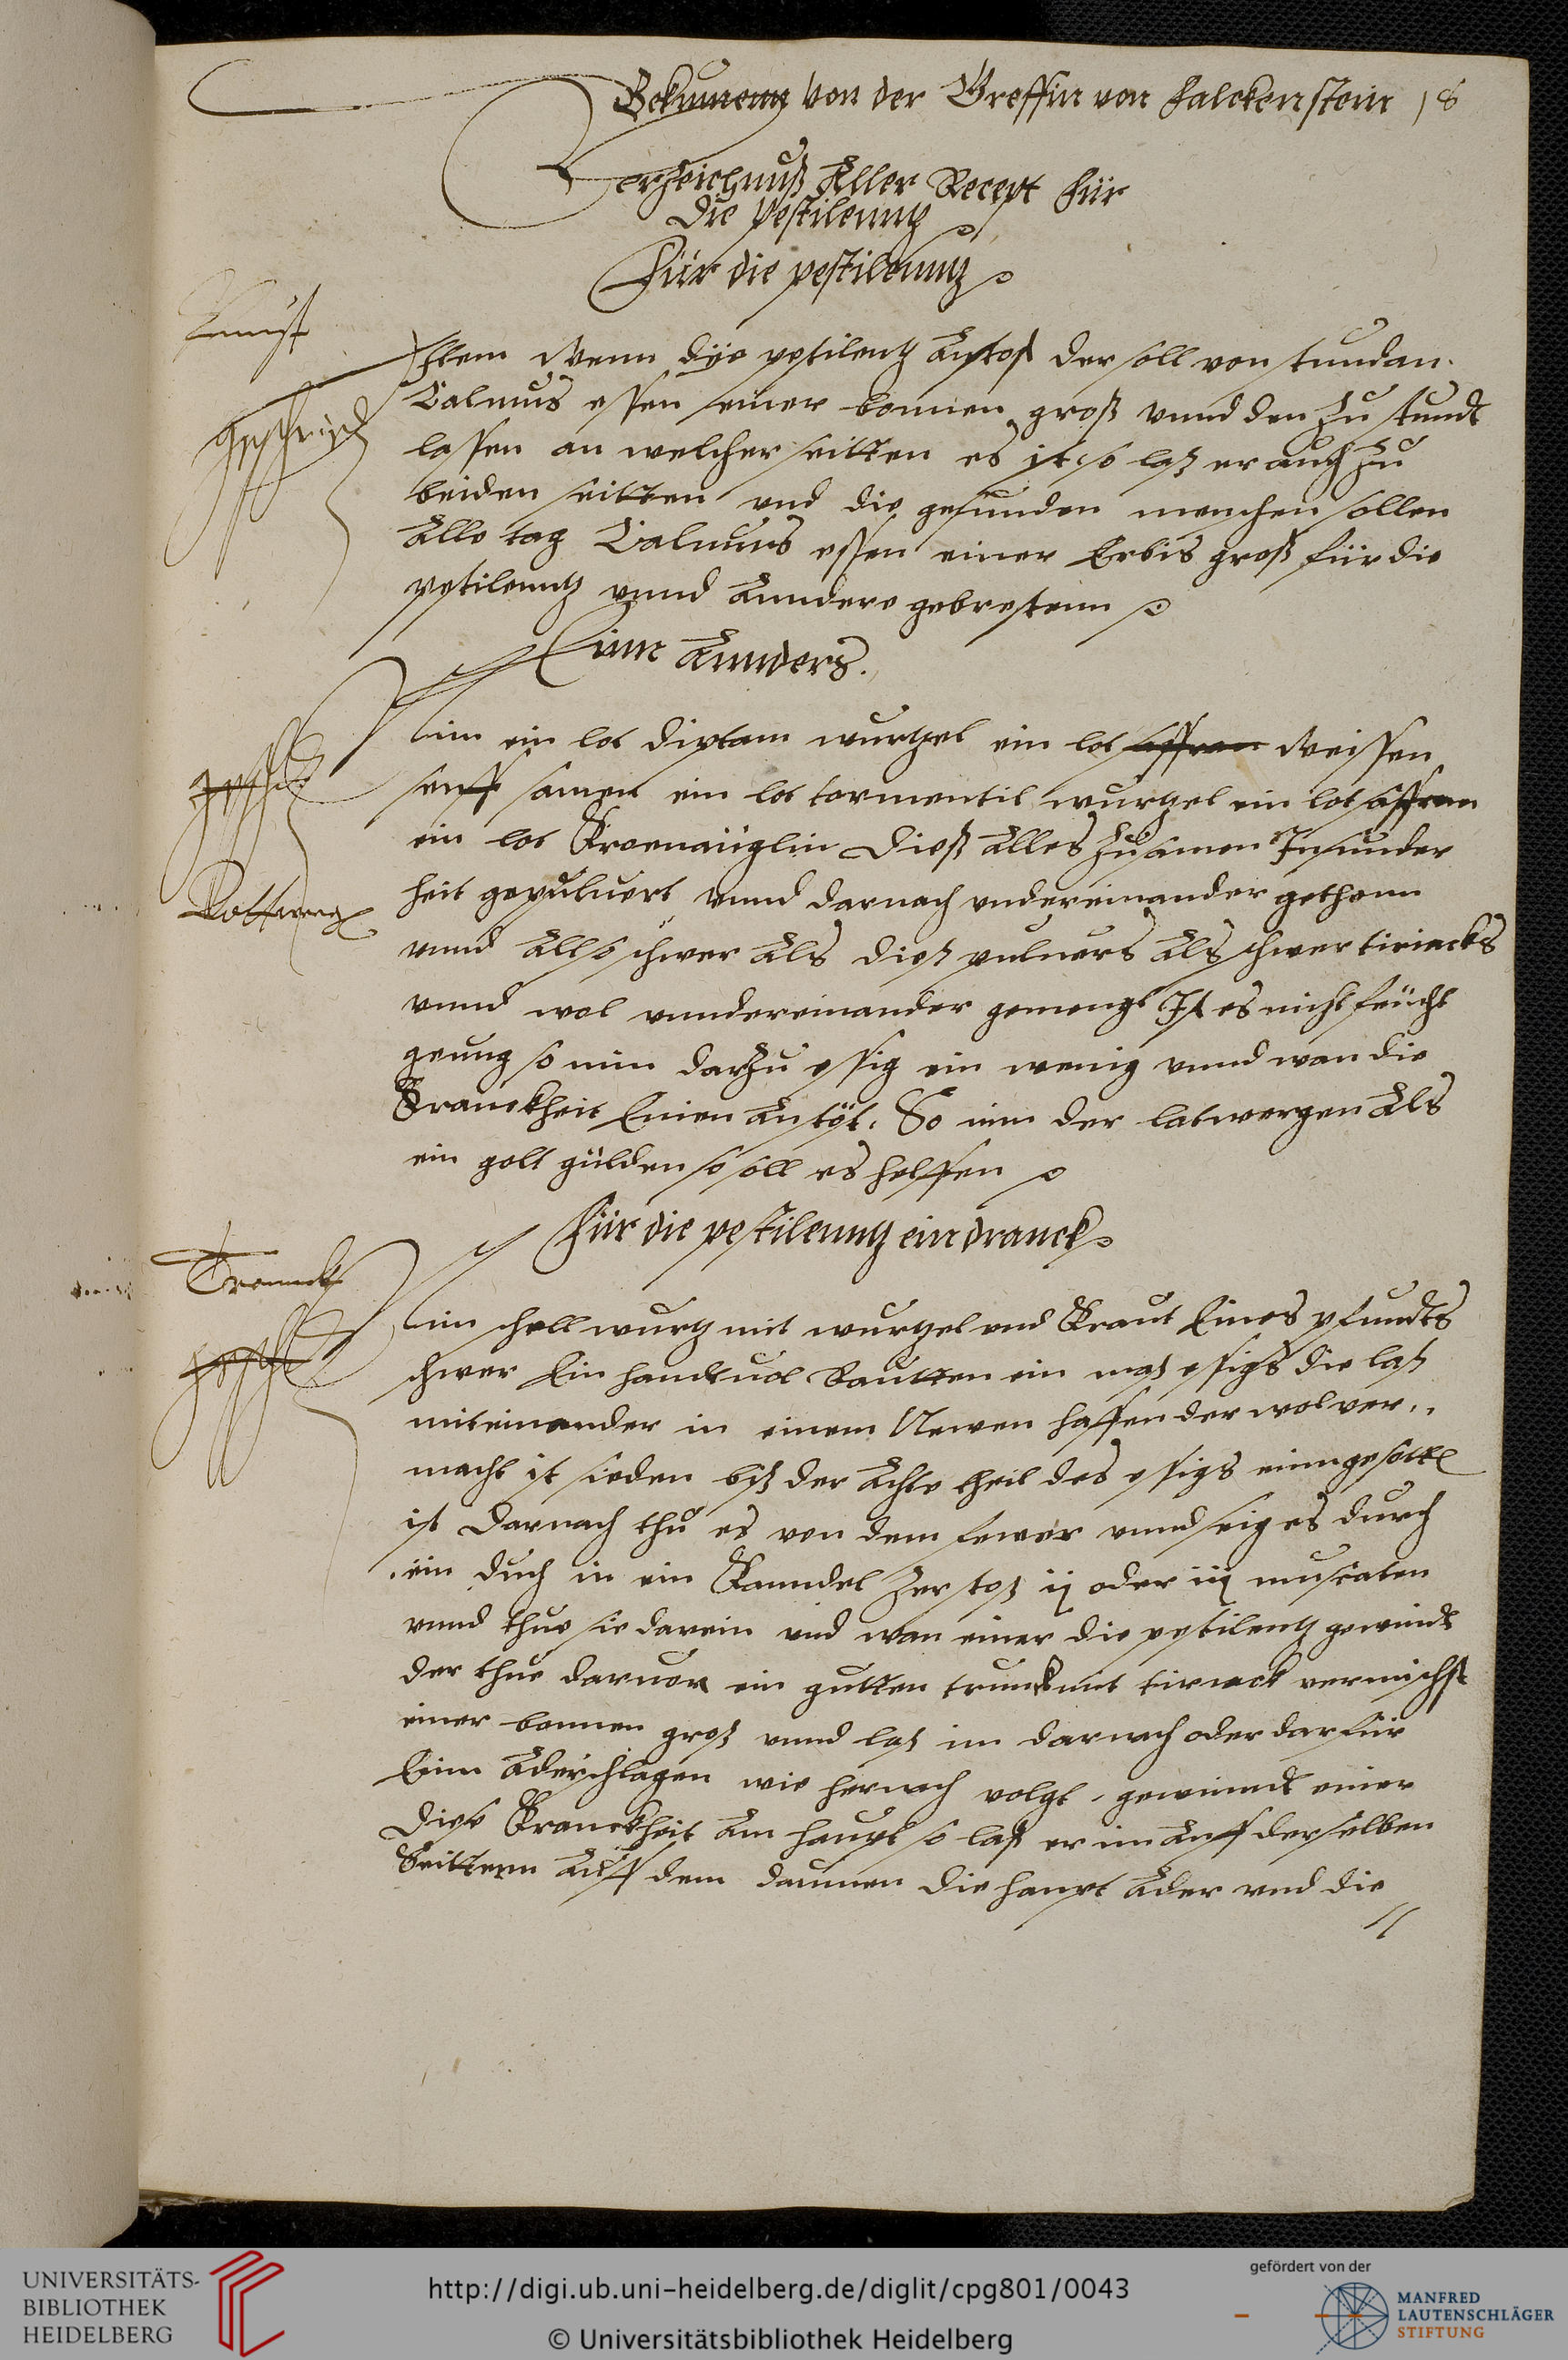 Bekumenn von der Greffin von Falckenstein 18
Verzeichnuß Aller Recept Für
die Pestilenntz
Für die pestilenntz
Kunst
Item Wenn dye pestilentz Anstost der soll von stundan
Calmus essen einer bonnen groß vnnd den Zu stundt
lassen an welcher seitten es ist so laß er auch Zu
beiden seitten vnd die gesunden menschen sollen
Alle tag Calmuus essen einer Erbis groß für die
pestilenntz vnnd Anndere gebrestenn
Einn Annders.
Nim ein lot diptam wurtzel ein lot saffran Weissen
senff samen ein lot tormentil wurtzel ein lot saffran
ein lot Kroenaüglin Dieß Alles Zusamen Insunder
heit gepuluert vnnd darnach vndereinander gethonn
Lattwerg
vnnd Allso schwer Als dieß puluers Als schwer tiriacks
vnnd wol vnndereinander gemengt Ist es nicht feücht
genng so nim darzu essig ein wenig vnnd wan die
Kranckheit Einen Anstöst. So nim der latwergen Als
ein golt gülden so soll es helffen
Für die pestilenntz ein dranck
Trannck
Nim schell wurtz mit wurtzel vnd Kraut Eines pfundts
schwer Ein handtuol Rautten ein maß essigs die laß
miteinander in einem Newen haffen der wol ver..
macht ist sieden biß der Achte theil des essigs einngesotten
ist Darnach thu es von dem fewer vnnd seig es durch
ein duch in ein Kanndel Zerstoß ij oder iij muscaten
vnnd thue sie darein vnd wan einer die pestilentz gewindt
der thue daruor ein gutten trunck mit tiriack vermischt
einer bonnen groß vnnd laß im darnach oder darfür
Einn Ader schlagen wie hernach volgt. gewinndt einer
Diese Kranckheit Am haupt so last er im Auff derselben
Seittenn Auff dem daumen die haupt Ader vnd die
UNIVERSITÄTS-
BIBLIOTHEK
HEIDELBERG
http://digi.ub.uni-heidelberg.de/diglit/cpg801/0043
© Universitätsbibliothek Heidelberg
gefördert von der
MANFRED
LAUTENSCHLÄGER
STIFTUNG